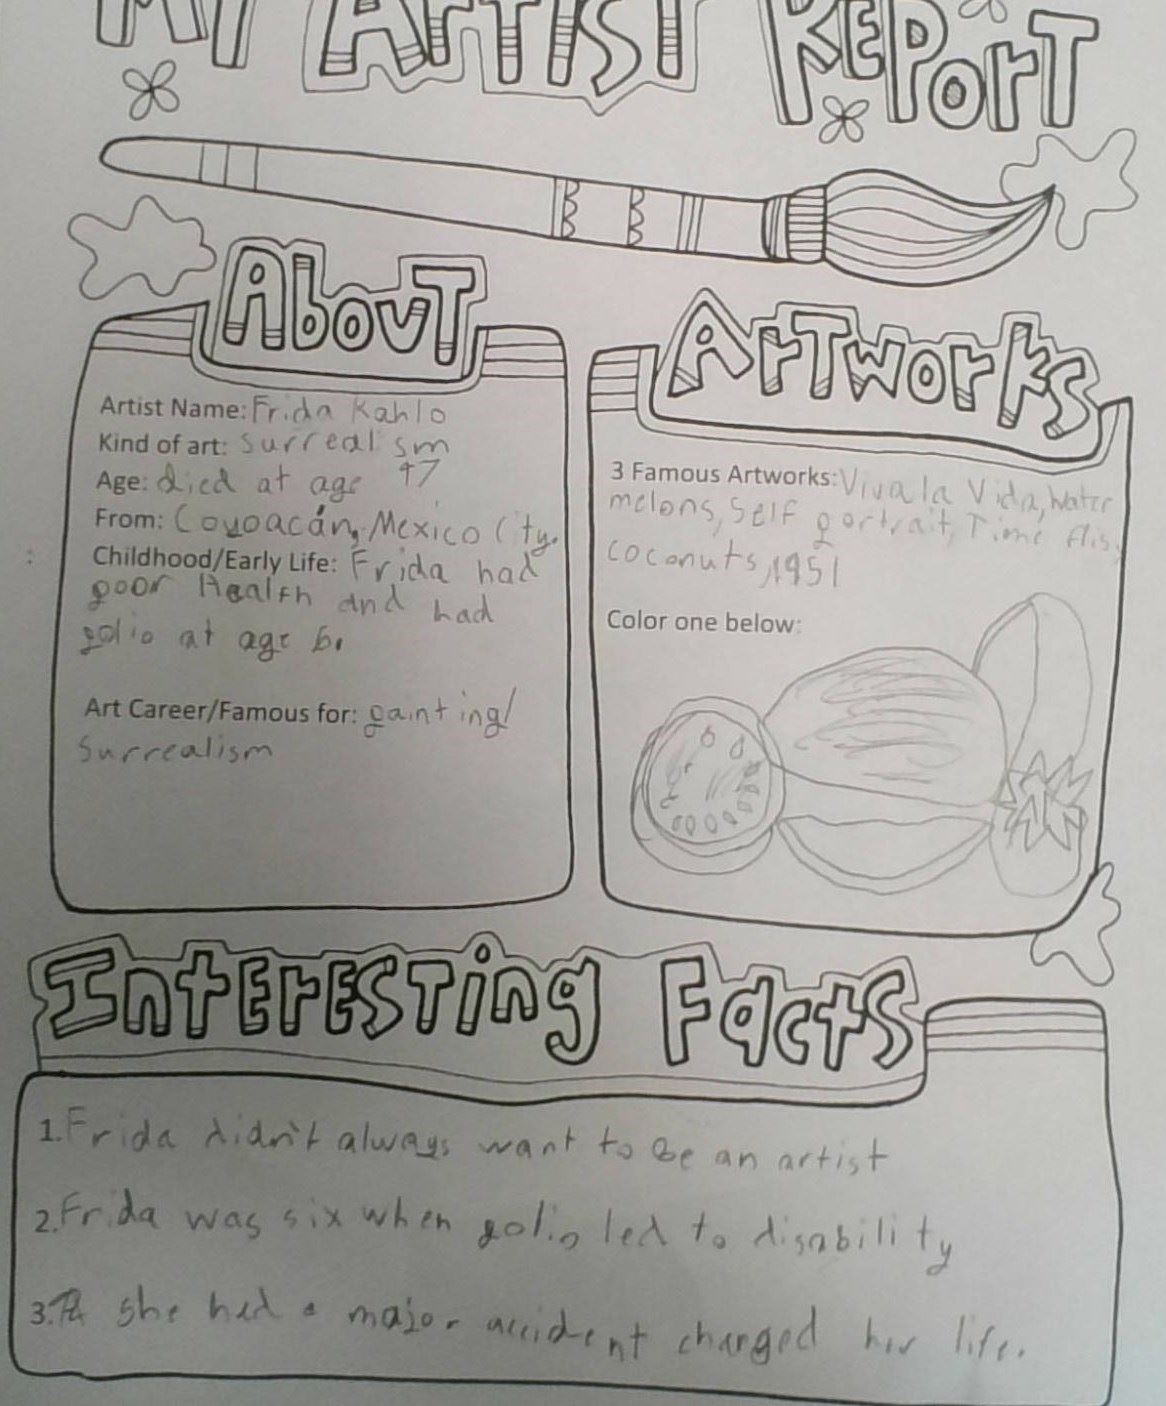 My Artist Report
About
Artist Name: Frida Kahlo
Kind of art: Surrealism
Age: died at age 47
From: Coyoacán, Mexico City.
Childhood/Early Life: Frida had
poor Health and had
polio at age 6.
Art Career/Famous for: painting/
Surrealism
Artworks
3 Famous Artworks: Viva la Vida, Water
melons, Self portrait, Time flis,
coconuts, 1951
Color one below:
Interesting Facts
1. Frida didn't always want to Be an artist
2. Frida was six when polio led to disability
3. she had a major accident changed her life.